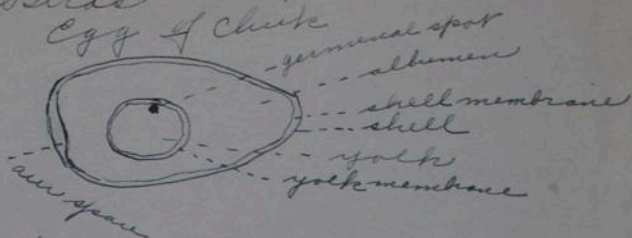 Birds
Egg of Chick
germinal spot
albumen
shell membrane
shell
yolk
yolk membrane
air space